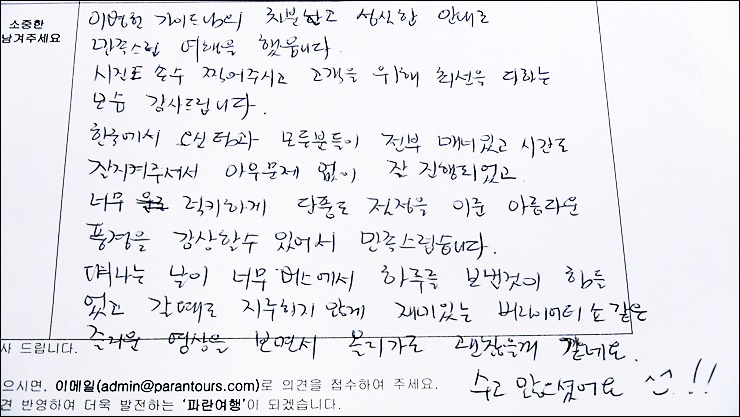 소중한
남겨주세요
이번헌 가이드님의 차분한고 성실한 안내로
만족스런 여행을 했습니다.
사진도 손수 찍어주시고 고객을 위해 최선을 다하는
모습 감사드립니다.
한국에서 오신 팀과 모든분들이 전부 매너있고 시간도
잘지켜주셔서 아무문제 없이 잘 진행되었고
너무 럭키하게 단풍도 절정을 이룬 아름다운
풍경을 감상할수 있어서 만족스럽습니다.
떠나는 날이 너무 버스에서 하루를 보낸것이 힘들
었고 갈때로 지루하지 않게 재미있는 버라이어티 쇼 같은
즐거운 영상을 보면서 올라가도 괜찮을꺼 같네요.
수고 많으셨어요 ^^ !!
사 드립니다.
으시면, 이메일(admin@parantours.com)로 의견을 접수하여 주세요.
견 반영하여 더욱 발전하는 '파란여행'이 되겠습니다.